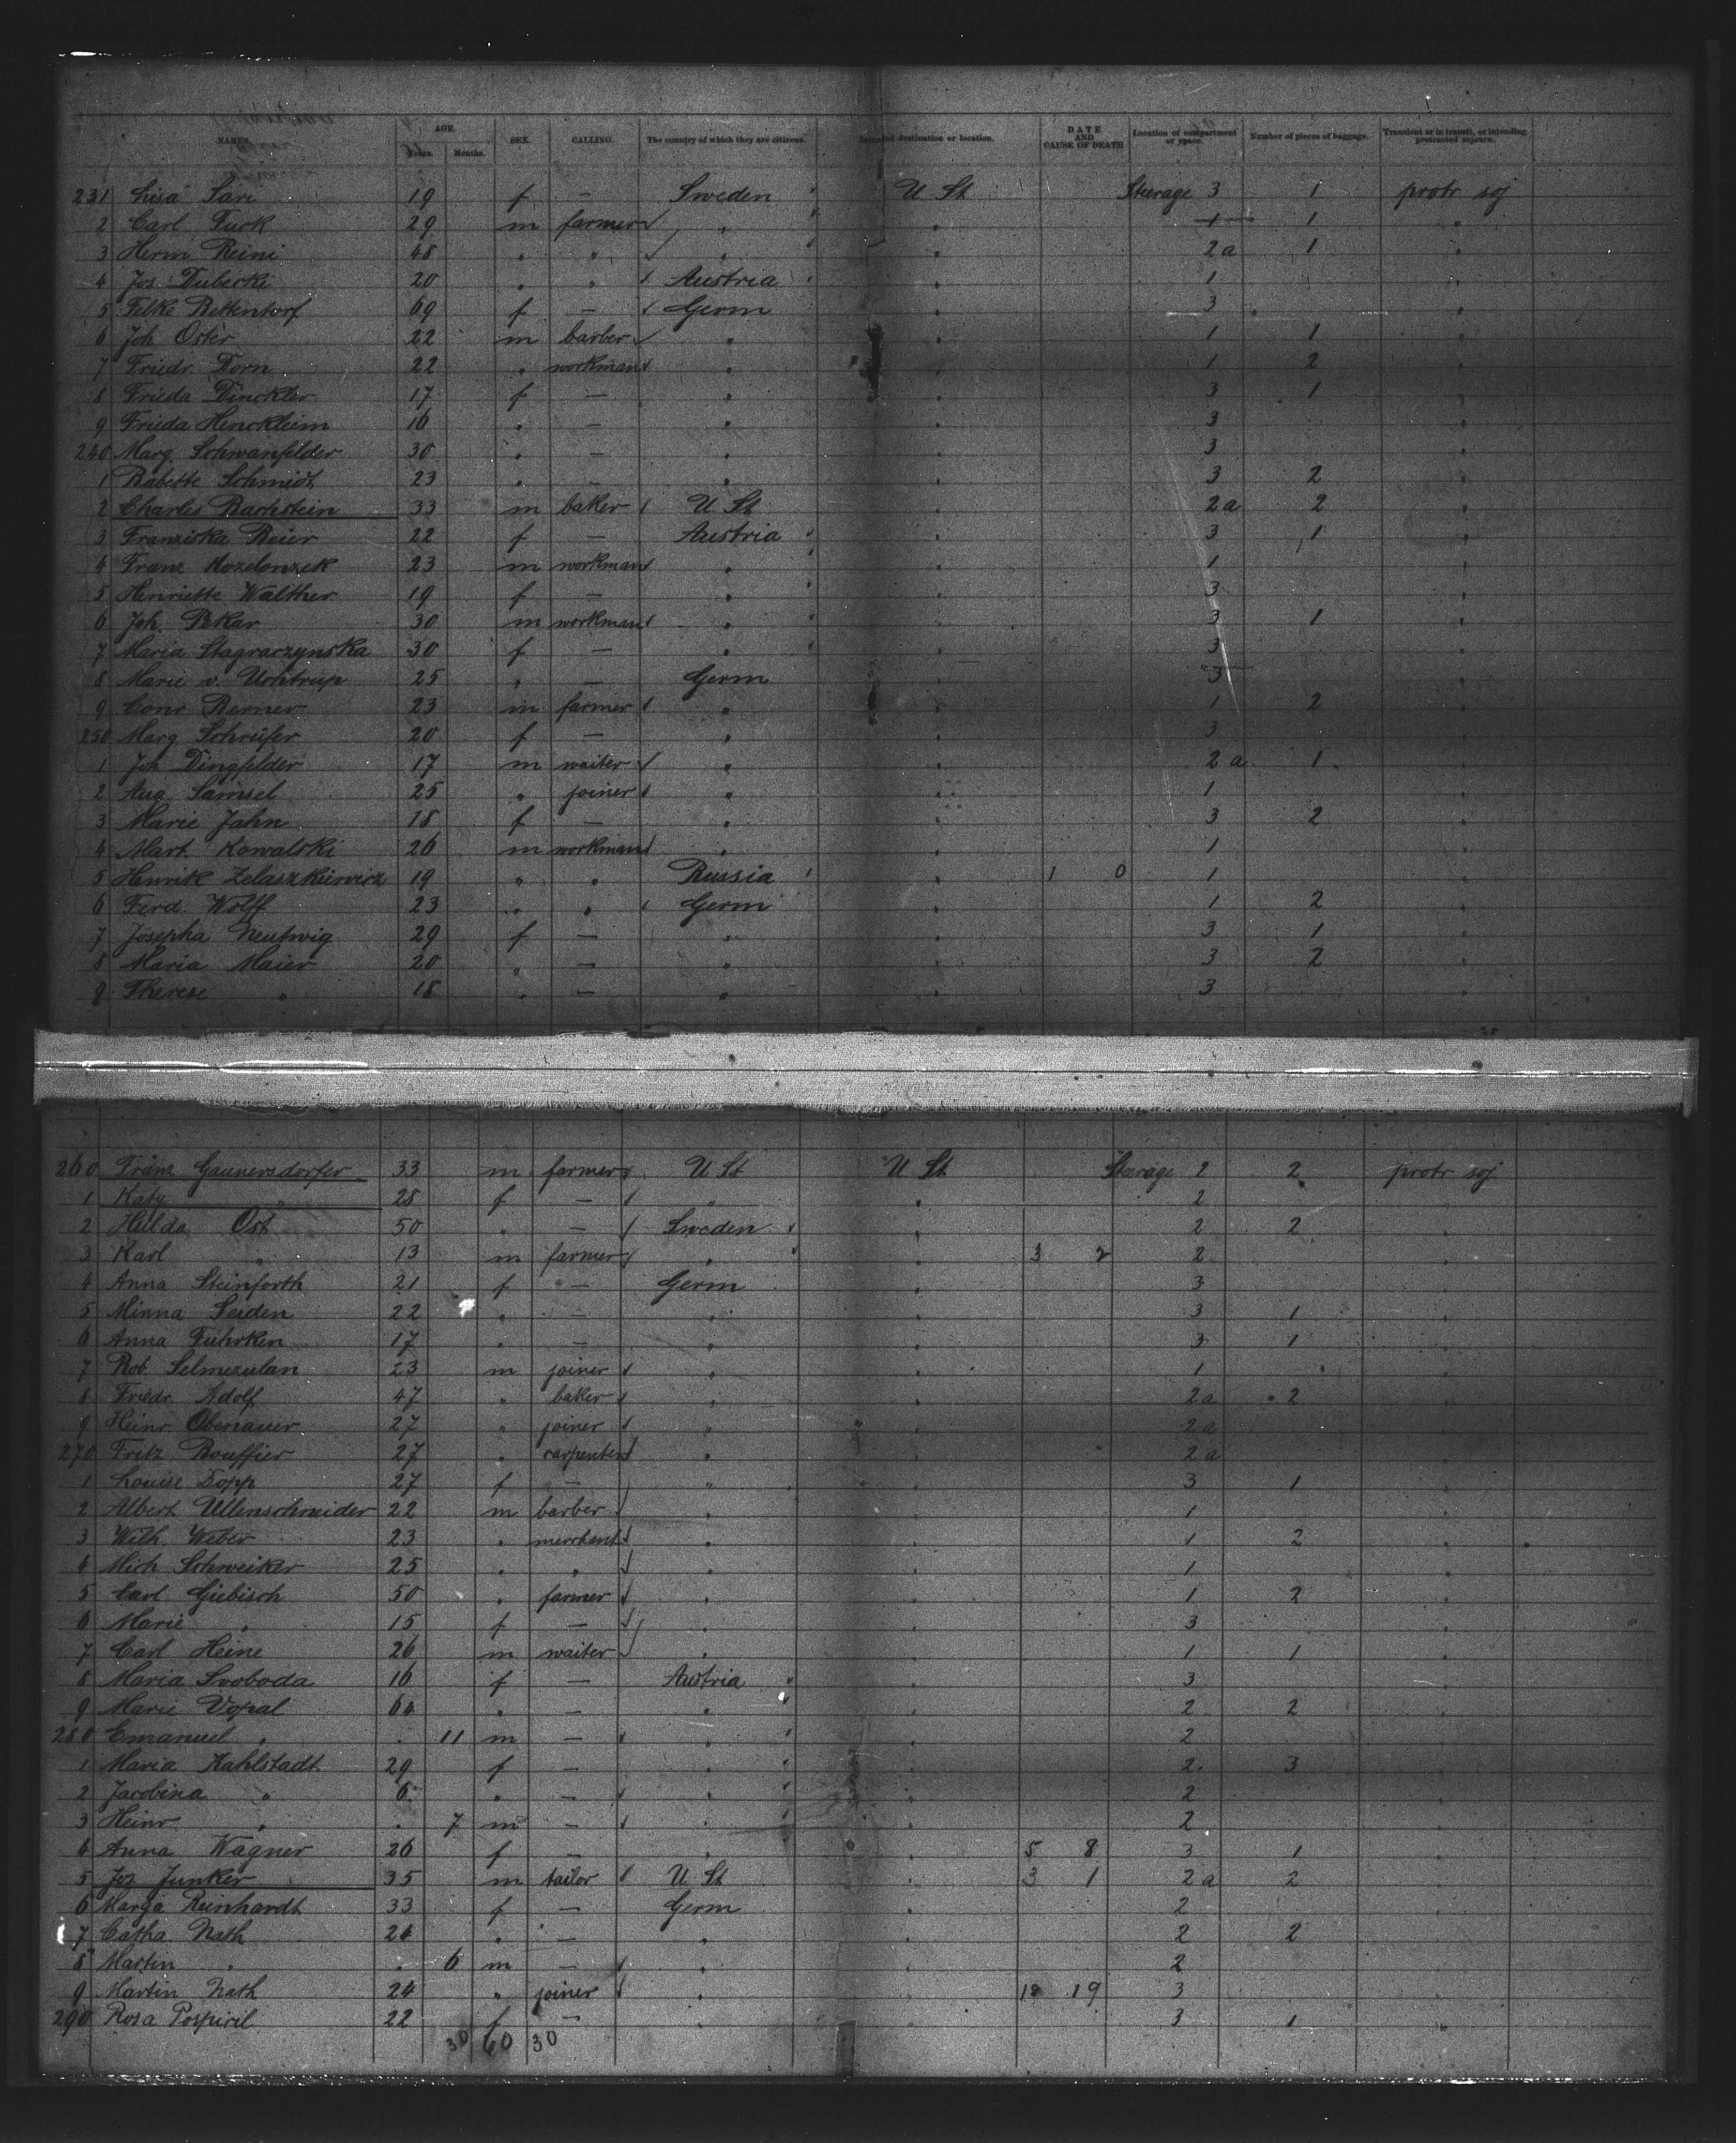 NAMES. AGE. Years. Months. SEX. CALLING. The country of which they are citizens. Intended destination or location. DATE AND CAUSE OF DEATH Location of compartment or space. Number of pieces of baggage. Transient or in transit, or intending protracted sojourn.
231 Lisa Sari 19 f — Sweden U St Steerage 3 1 protr soj
2 Carl Turk 29 m farmer " " 1 1 "
3 Herm Reini 48 " " " " 2a 1 "
4 Jos. Dubecki 20 " " Austria " 1 "
5 Felke Bettentorf 69 f — Germ " 3 "
6 Joh Oster 22 m barber " " 1 1 "
7 Friedr. Dorn 22 " workman " " 1 2 "
8 Frieda Dinckler 17 f — " " 3 1 "
9 Frieda Henckleim 16 " — " " 3 "
240 Marg. Schwanfelder 30 " — " " 3 "
1 Babette Schmidt 23 " — " " 3 2 "
2 Charles Bachstein 33 m baker U St " 2a 2 "
3 Franziska Beier 22 f — Austria " 3 1 "
4 Franz Kozelonzek 23 m workman " " 1 "
5 Henriette Walther 19 f — " " 3 "
6 Joh. Pekar 30 m workman " " 3 1 "
7 Maria Stagraczynska 30 f — " " 3 "
8 Marie v. Uchtrup 25 " — Germ " 3 "
9 Conr Berner 23 m farmer " " 1 2 "
250 Marg Schrüfer 20 f — " " 3 "
1 Joh Dingfelder 17 m waiter " " 2a 1 "
2 Aug Samsel 25 " joiner " " 1 "
3 Marie Jahn 18 f — " " 3 2 "
4 Mart. Kowalski 26 m workman " " 1 "
5 Henrik Zelaszkiewicz 19 " " Russia " 1 0 1 "
6 Ferd. Wolff 23 " " Germ " 1 2 "
7 Josepha Neutwig 29 f — " " 3 1 "
8 Maria Maier 20 " — " " 3 2 "
9 Therese " 18 " — " " 3 "
260 Franz Gaunersdorfer 33 m farmer U St U St Steerage 2 2 protr soj
1 Katy " 28 f — " " 2 "
2 Hulda Ost 50 " — Sweden " 2 2 "
3 Karl " 13 m farmer " " 3 2 2 "
4 Anna Steinforth 21 f — Germ " 3 "
5 Minna Seiden 22 " — " " 3 1 "
6 Anna Fuhrken 17 " — " " 3 1 "
7 Rob. Selmezulan 23 m joiner " " 1 "
8 Friedr. Adolf 47 " baker " " 2a 2 "
9 Heinr. Obenauer 27 " joiner " " 2a "
270 Fritz Bouffier 27 " carpenter " " 2a "
1 Louise Dopp 27 f — " " 3 1 "
2 Albert Ullenschneider 22 m barber " " 1 "
3 Wilh Weber 23 " merchant " " 1 2 "
4 Mich Schweiker 25 " " " " 1 "
5 Carl Giebisch 50 " farmer " " 1 2 "
6 Marie " 15 f — " " 3 "
7 Carl Heine 26 m waiter " " 1 1 "
8 Maria Svoboda 16 f — Austria " 3 "
9 Marie Vopal 64 " — " " 2 2 "
280 Emanuel " . 11 m — " " 2 "
1 Maria Kahlstadt 29 f — " " 2 3 "
2 Jacobina " 6 " — " " 2 "
3 Heinr " . 7 m — " " 2 "
4 Anna Wagner 26 f — " " 5 8 3 1 "
5 Jos Junker 35 m tailor U. St " 3 1 2a 2 "
6 Marga Reinhardt 33 f — Germ " 2 "
7 Catha Nath 24 " — " " 2 2 "
8 Martin " . 6 m — " " 2 "
9 Martin Nath 24 " joiner " " 18 19 3 "
290 Rosa Pospicil 22 f — " " 3 1 "
30 60 30